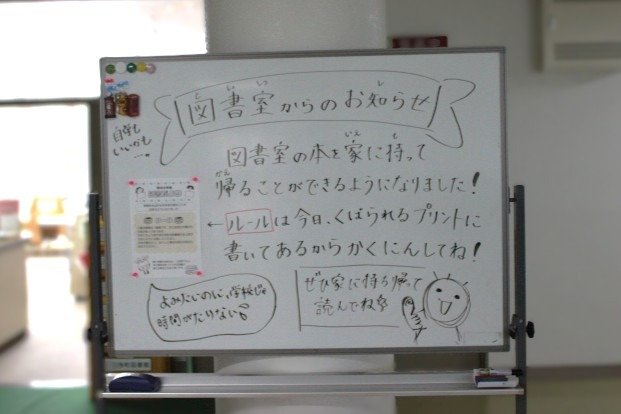 図書室からのお知らせ
図書室の本を家に持って
帰ることができるようになりました!
←ルールは今日、くばられるプリントに
書いてあるからかくにんしてね!
よみたいのに、学校じゃ
時間がたりない
ぜひ家に持ち帰って
読んでね